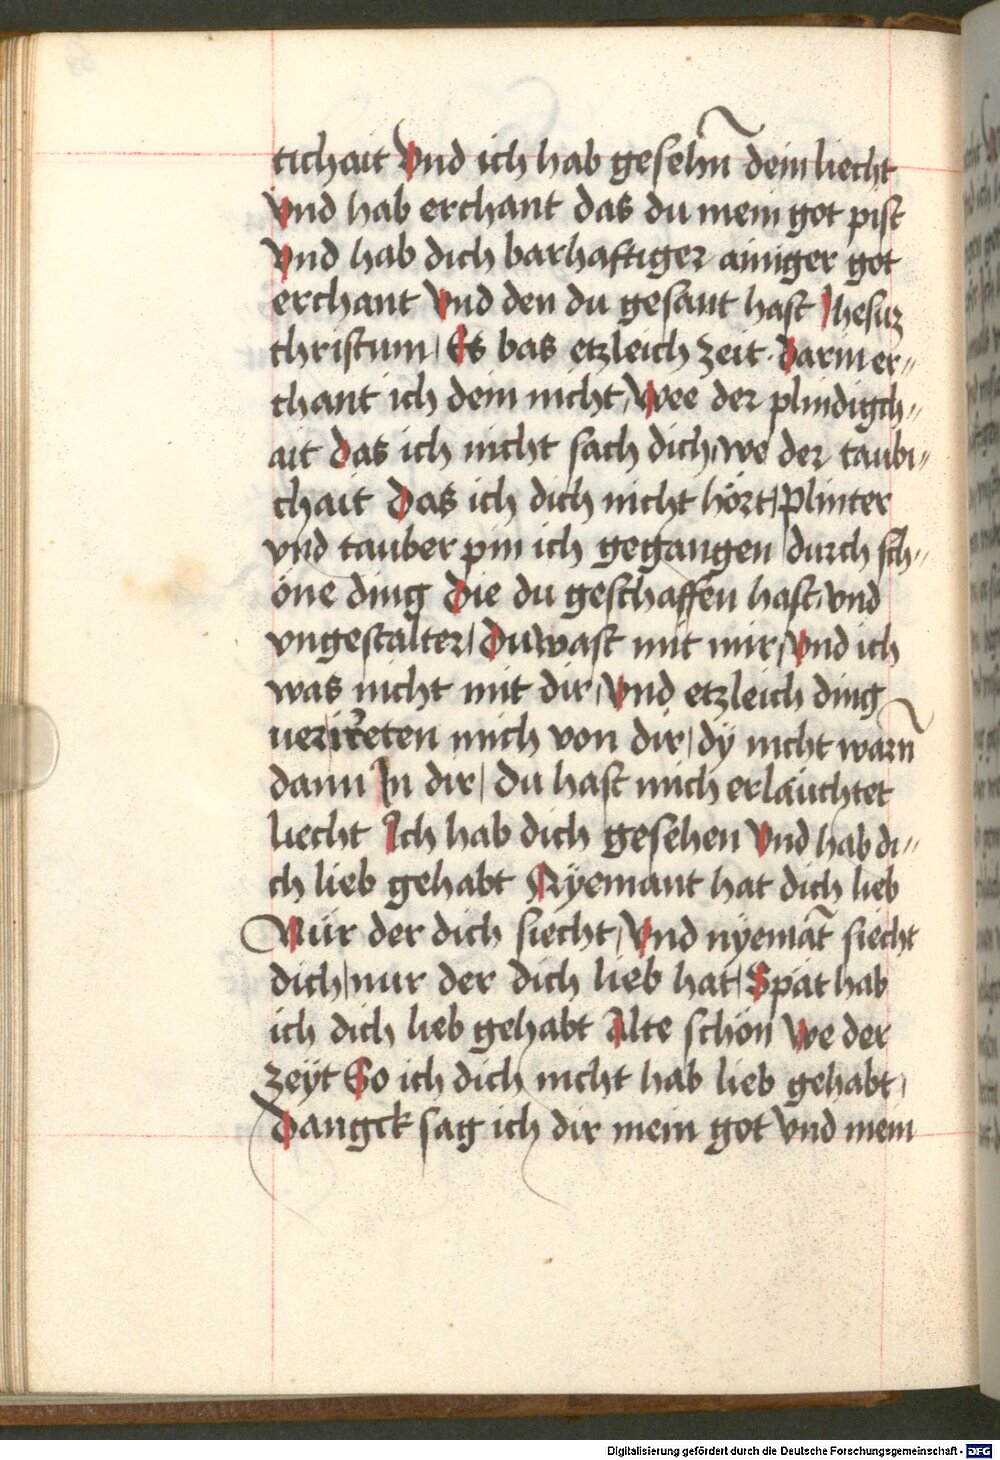 tichait Vnd ich hab gesehn̄ dein liecht
Vnd hab erchant das du mein got pist
Vnd hab dich barhaftiger ainiger got
erchant Vnd den du gesant hast Jhesuz
christum / Es bas etzleich zeit · Darin er〃
chant ich dein nicht / Wee der plindigch〃
ait Das ich nicht sach dich / we der taubi〃
chait Das ich dich nicht hört / Plinter
vnd tauber pin ich gegangen durch sch〃
öne ding Die du geschaffen hast / vnd
vngestalter / Du wast mit mir / Vnd ich
was nicht mit dir / Vnd etzleich ding
uerirreten mich von dir / dÿ nicht warn̄
dann In dir / Du hast mich erläuchtet
liecht Ich hab dich gesehen Vnd hab di〃
ch lieb gehabt Nÿemant hat dich lieb
Nür der dich siecht / Vnd nÿemāt siecht
dich / nur der dich lieb hat / Spät hab
ich dich lieb gehabt Alte schön We der
zeÿt So ich dich nicht hab lieb gehabt /
Dangck sag ich dir mein got Vnd mein
Digitalisierung gefördert durch die Deutsche Forschungsgemeinschaft - DFG